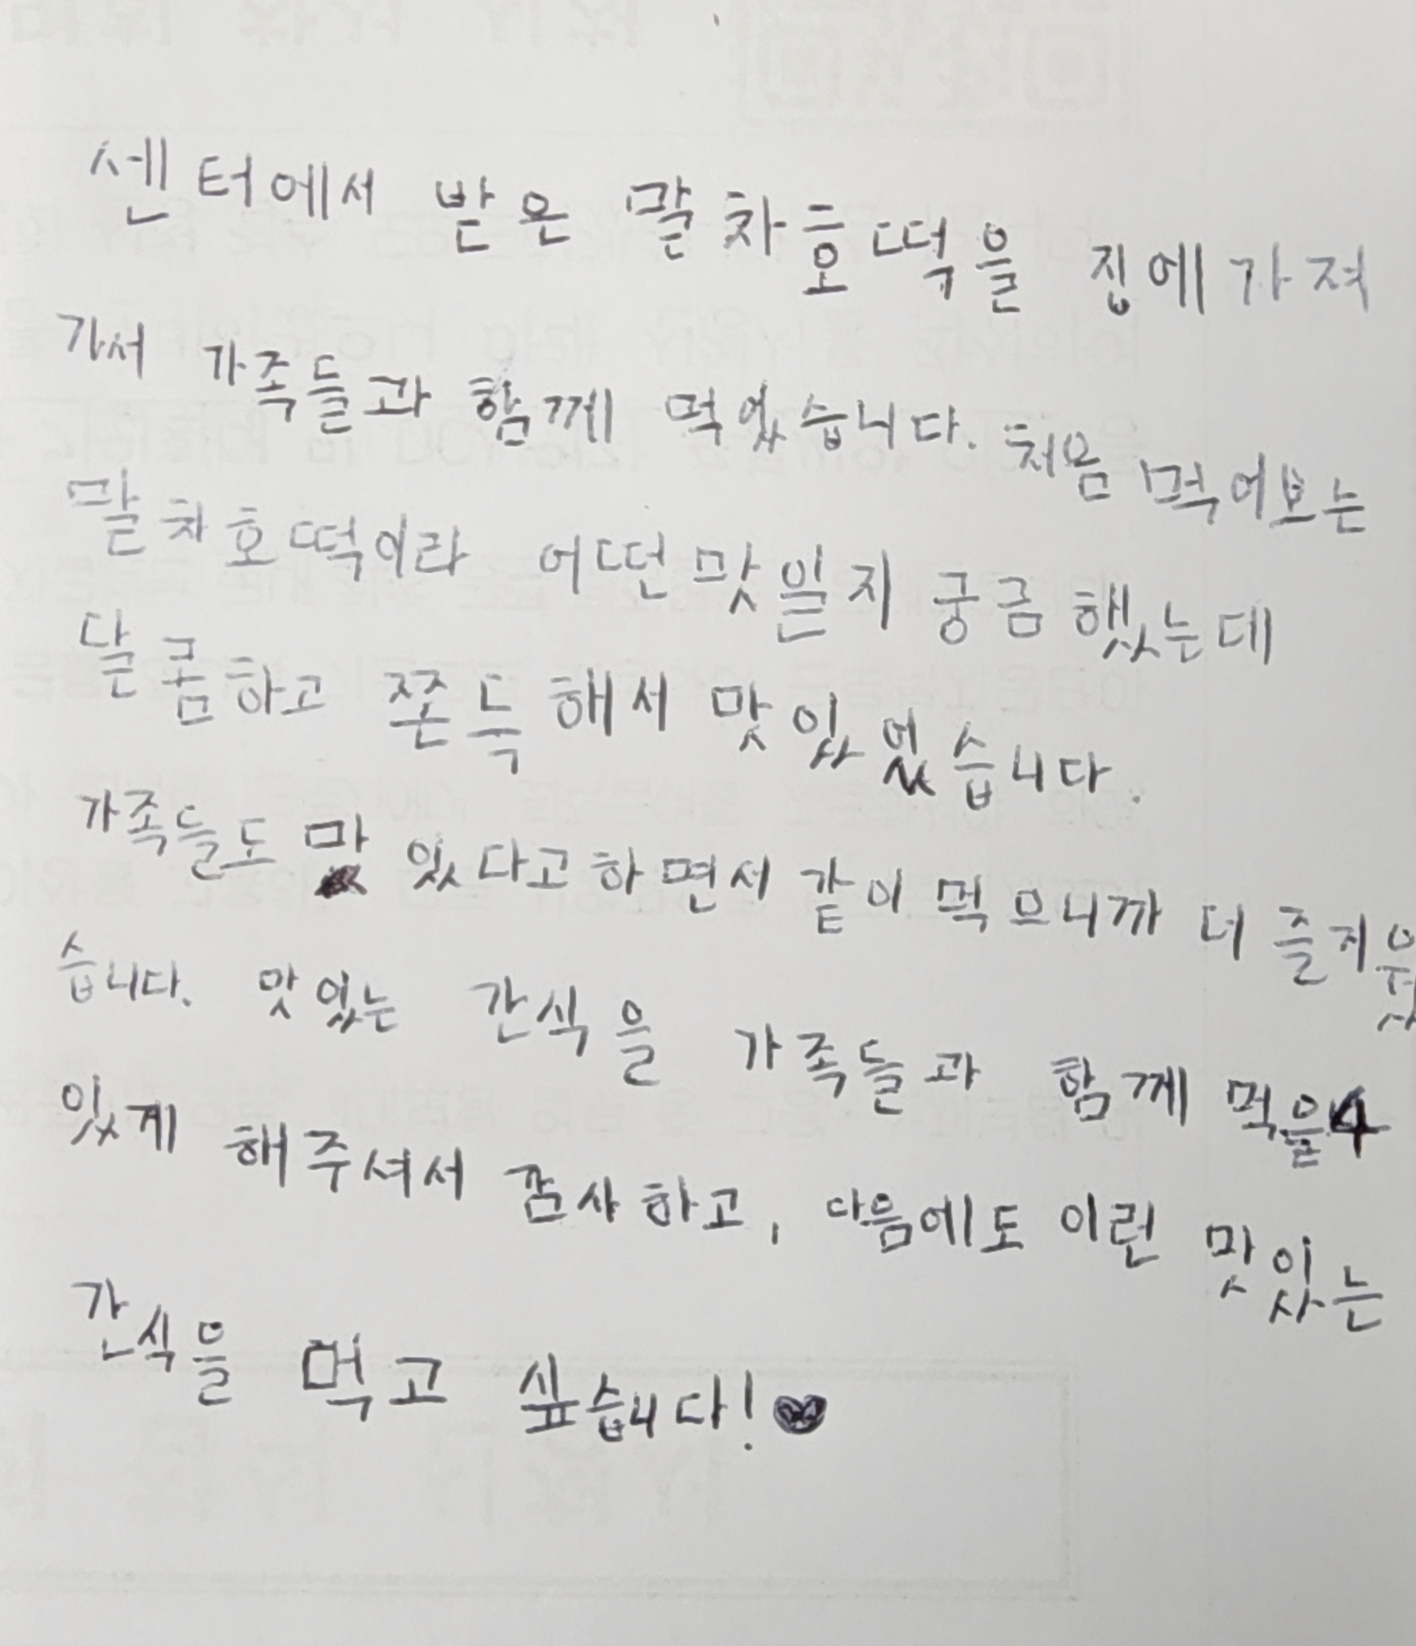 센터에서 받은 말차호떡을 집에 가져
가서 가족들과 함께 먹었습니다. 처음 먹어보는
말차호떡이라 어떤 맛일지 궁금했는데
달콤하고 쫀득해서 맛있었습니다.
가족들도 맛있다고하면서 같이 먹으니까 더 즐거웠
습니다. 맛있는 간식을 가족들과 함께 먹을수
있게 해주셔서 감사하고, 다음에도 이런 맛있는
간식을 먹고 싶습니다!♥